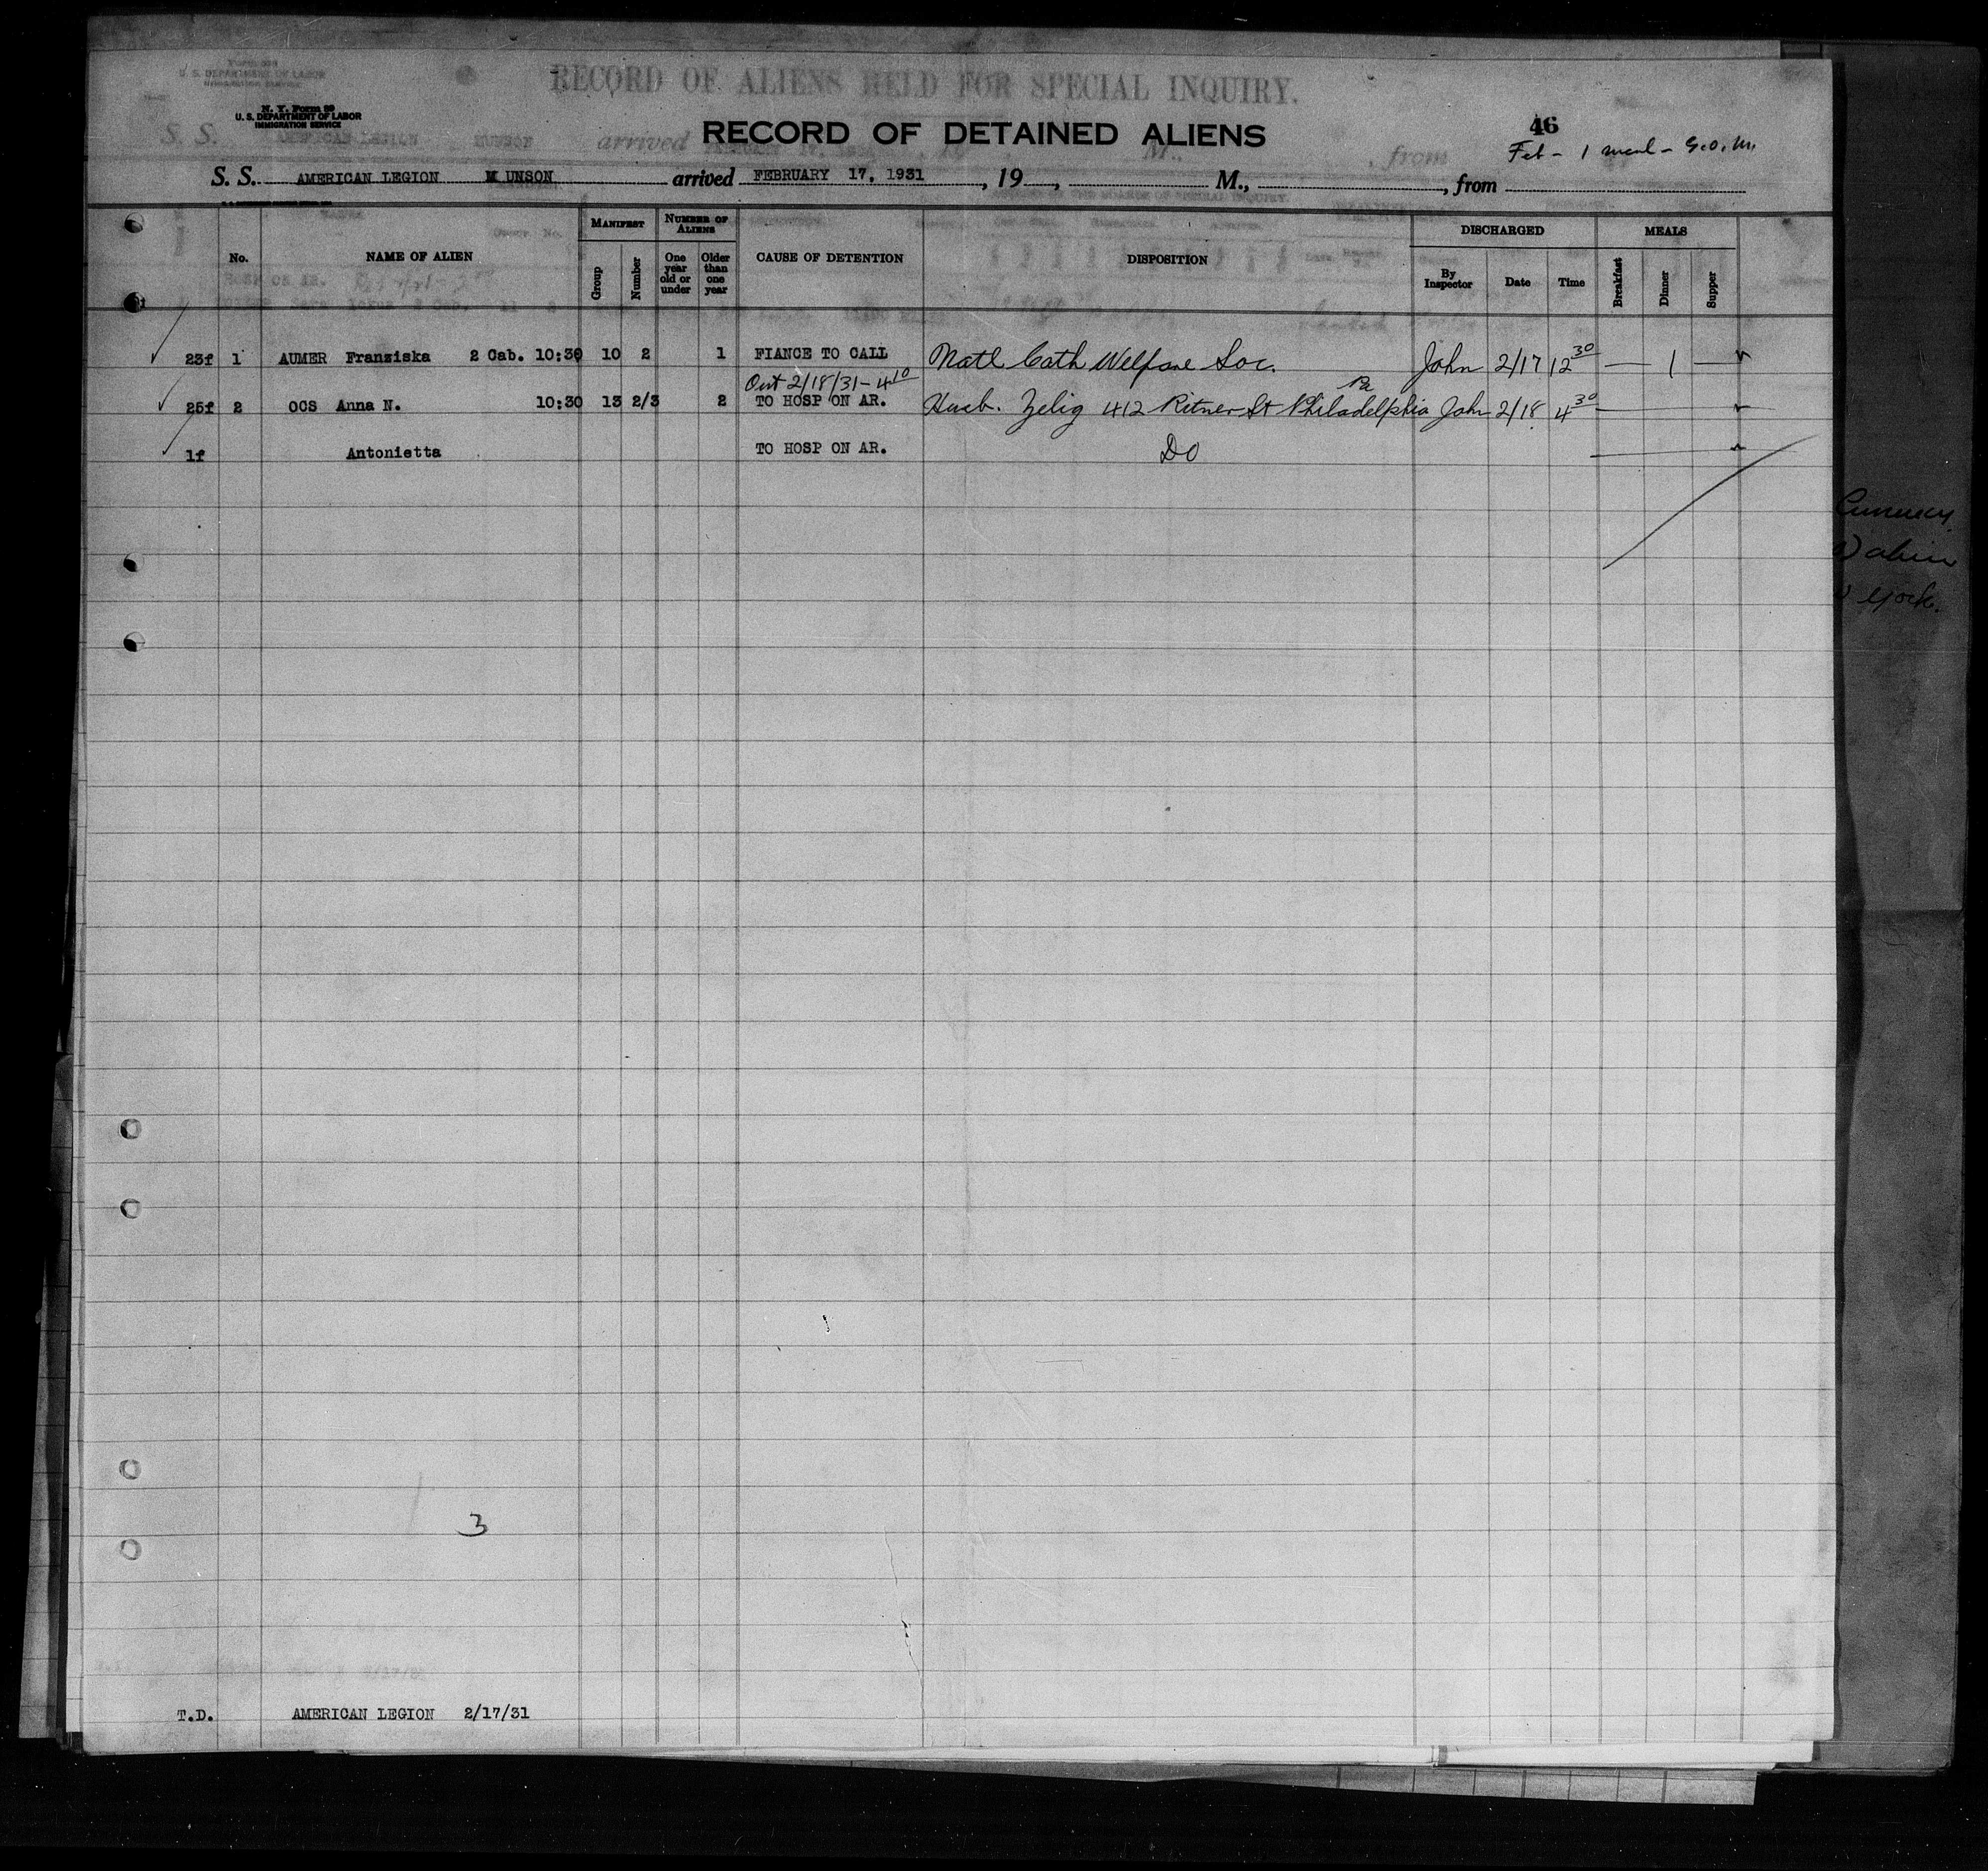 RECORD OF ALIENS HELD FOR SPECIAL INQUIRY.
N. Y. Form 99
U. S. DEPARTMENT OF LABOR
IMMIGRATION SERVICE
RECORD OF DETAINED ALIENS
46
Feb - 1 meal - G.O.M.
S. S. AMERICAN LEGION MUNSON arrived FEBRUARY 17, 1931, 19 , M., , from
No. NAME OF ALIEN MANIFEST Group Number NUMBER OF ALIENS One year old or under Older than one year CAUSE OF DETENTION DISPOSITION DISCHARGED By Inspector Date Time MEALS Breakfast Dinner Supper
23f 1 AUMER Franziska 2 Cab. 10:30 10 2 1 FIANCE TO CALL Natl Cath Welfare Soc. John 2/17 12 30 — 1 —
Out 2/18/31 - 4 10
25f 2 OCS Anna N. 10:30 13 2/3 2 TO HOSP ON AR. Husb. Zelig 412 Ritner St Philadelphia Pa John 2/18 4 30
1f Antonietta TO HOSP ON AR. DO
3
T.D. AMERICAN LEGION 2/17/31